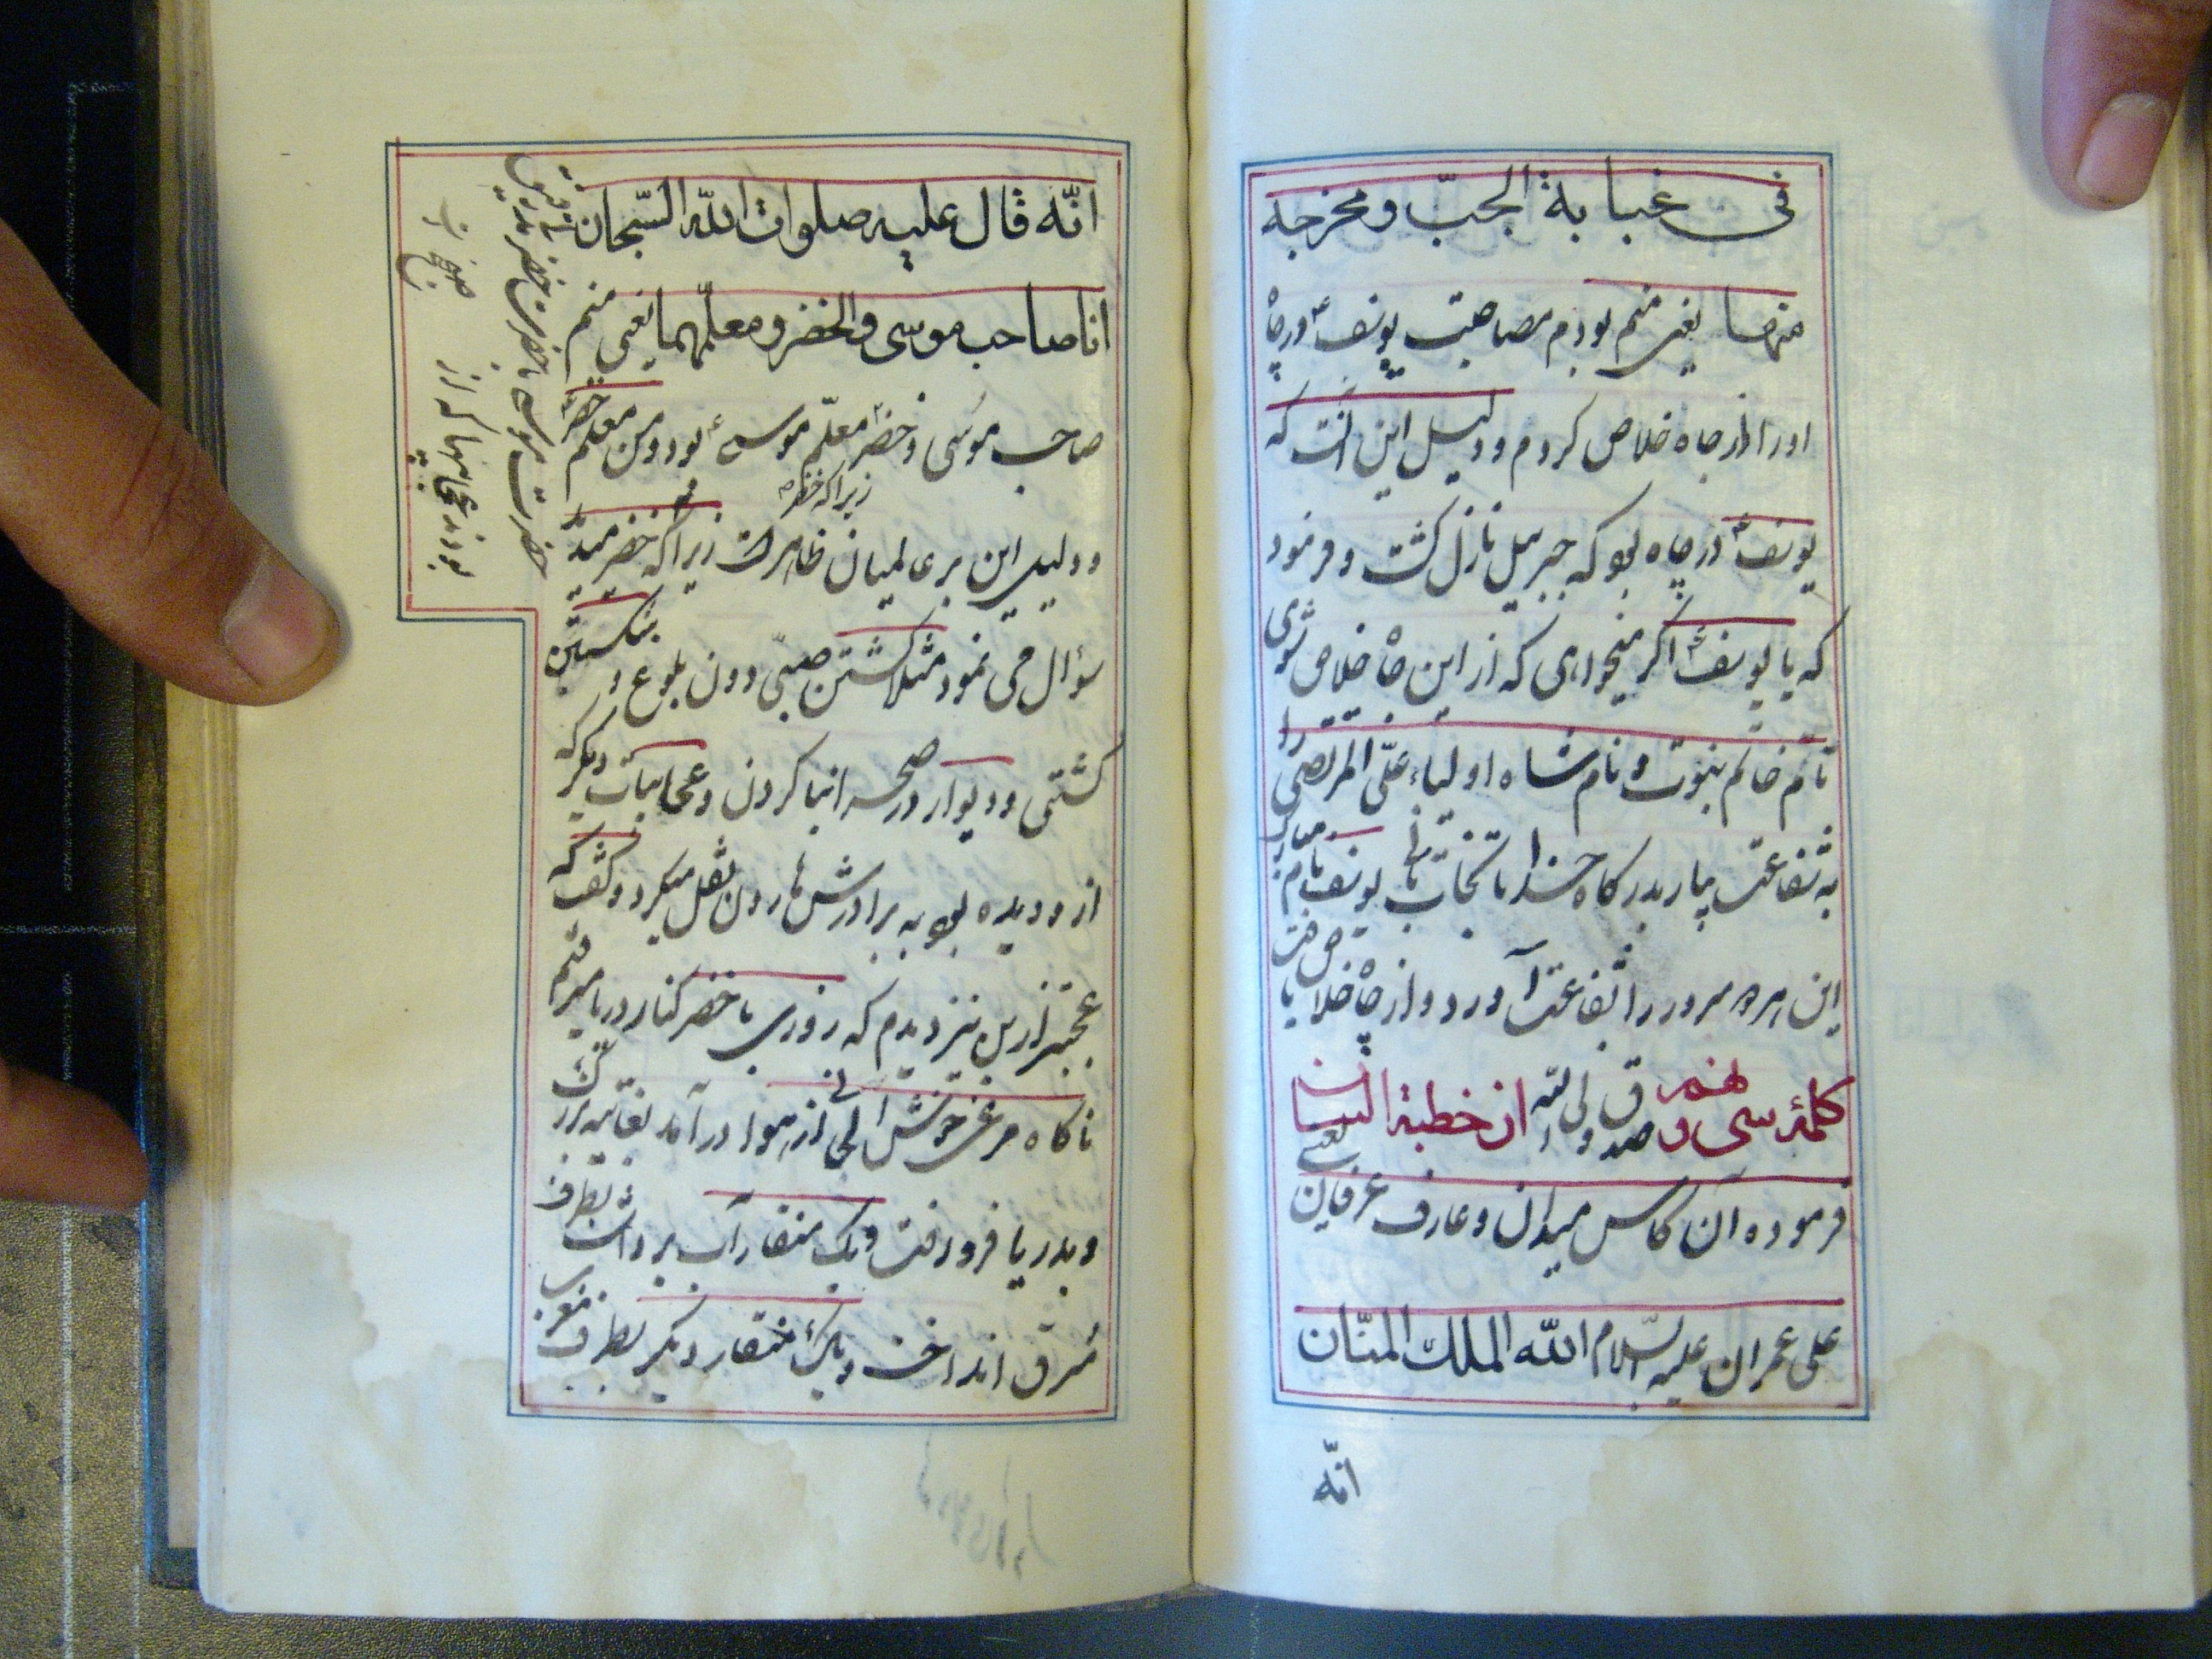 فی غیابة الجبّ و مخرجه
منها یعنی منم بودم مصاحبت یوسفؑ در چاه
او را از چاه خلاص کردم و دلیل این آنست که
یوسفؑ در چاه بود که جبرییل نازل کشت و فرمود
که یا یوسفؑ اکر میخواهی که از این چاه خلاص شوی
نام خاتم نبوت و نام شاه اولیاء علی المرتضی را
به شفاعت بیار بدرکاه خدا تا نجات یابی یوسف نام مبارک
این هر دو سرور را بشفاعت آورد و از چاه خلاص یافت
کلمهٔ سی و هفتم صدق ولی الله از خطبة البیان یعنی
فرموده آن کاس میدان و عارف عرفان
علی عمران علیه السلام الله الملك المنّان
انّه
انّه قال علیه صلوات الله السّبحان
انا صاحب موسی و الخضر و معلّمهما یعنی منم
صاحب موسی و خضر معلّم موسیؑ بود و من معلم خضرؑ
زیرا که خضر
و دلیل این بر عالمیان ظاهر است زیرا که خضر
سؤال می نمود مثلا کشتن صبیّ دون بلوغ و شکستن
کشتی و دیوار در صحرا بنا کردن و عجایبات دیکر که
از و دیده بود به برادرش هارون نقل میکرد و کفت که
عجبتر از این نیز دیدم که روزی با خضر کنار دریا میرفتم
ناکاه مرغی خوش الحانی از هوا در آمد بغایت بزرک
و بدریا فرو رفت و یک منقار آب برداشت بطرف
مشرق انداخت و یک منقار دیکر بطرف مغرب